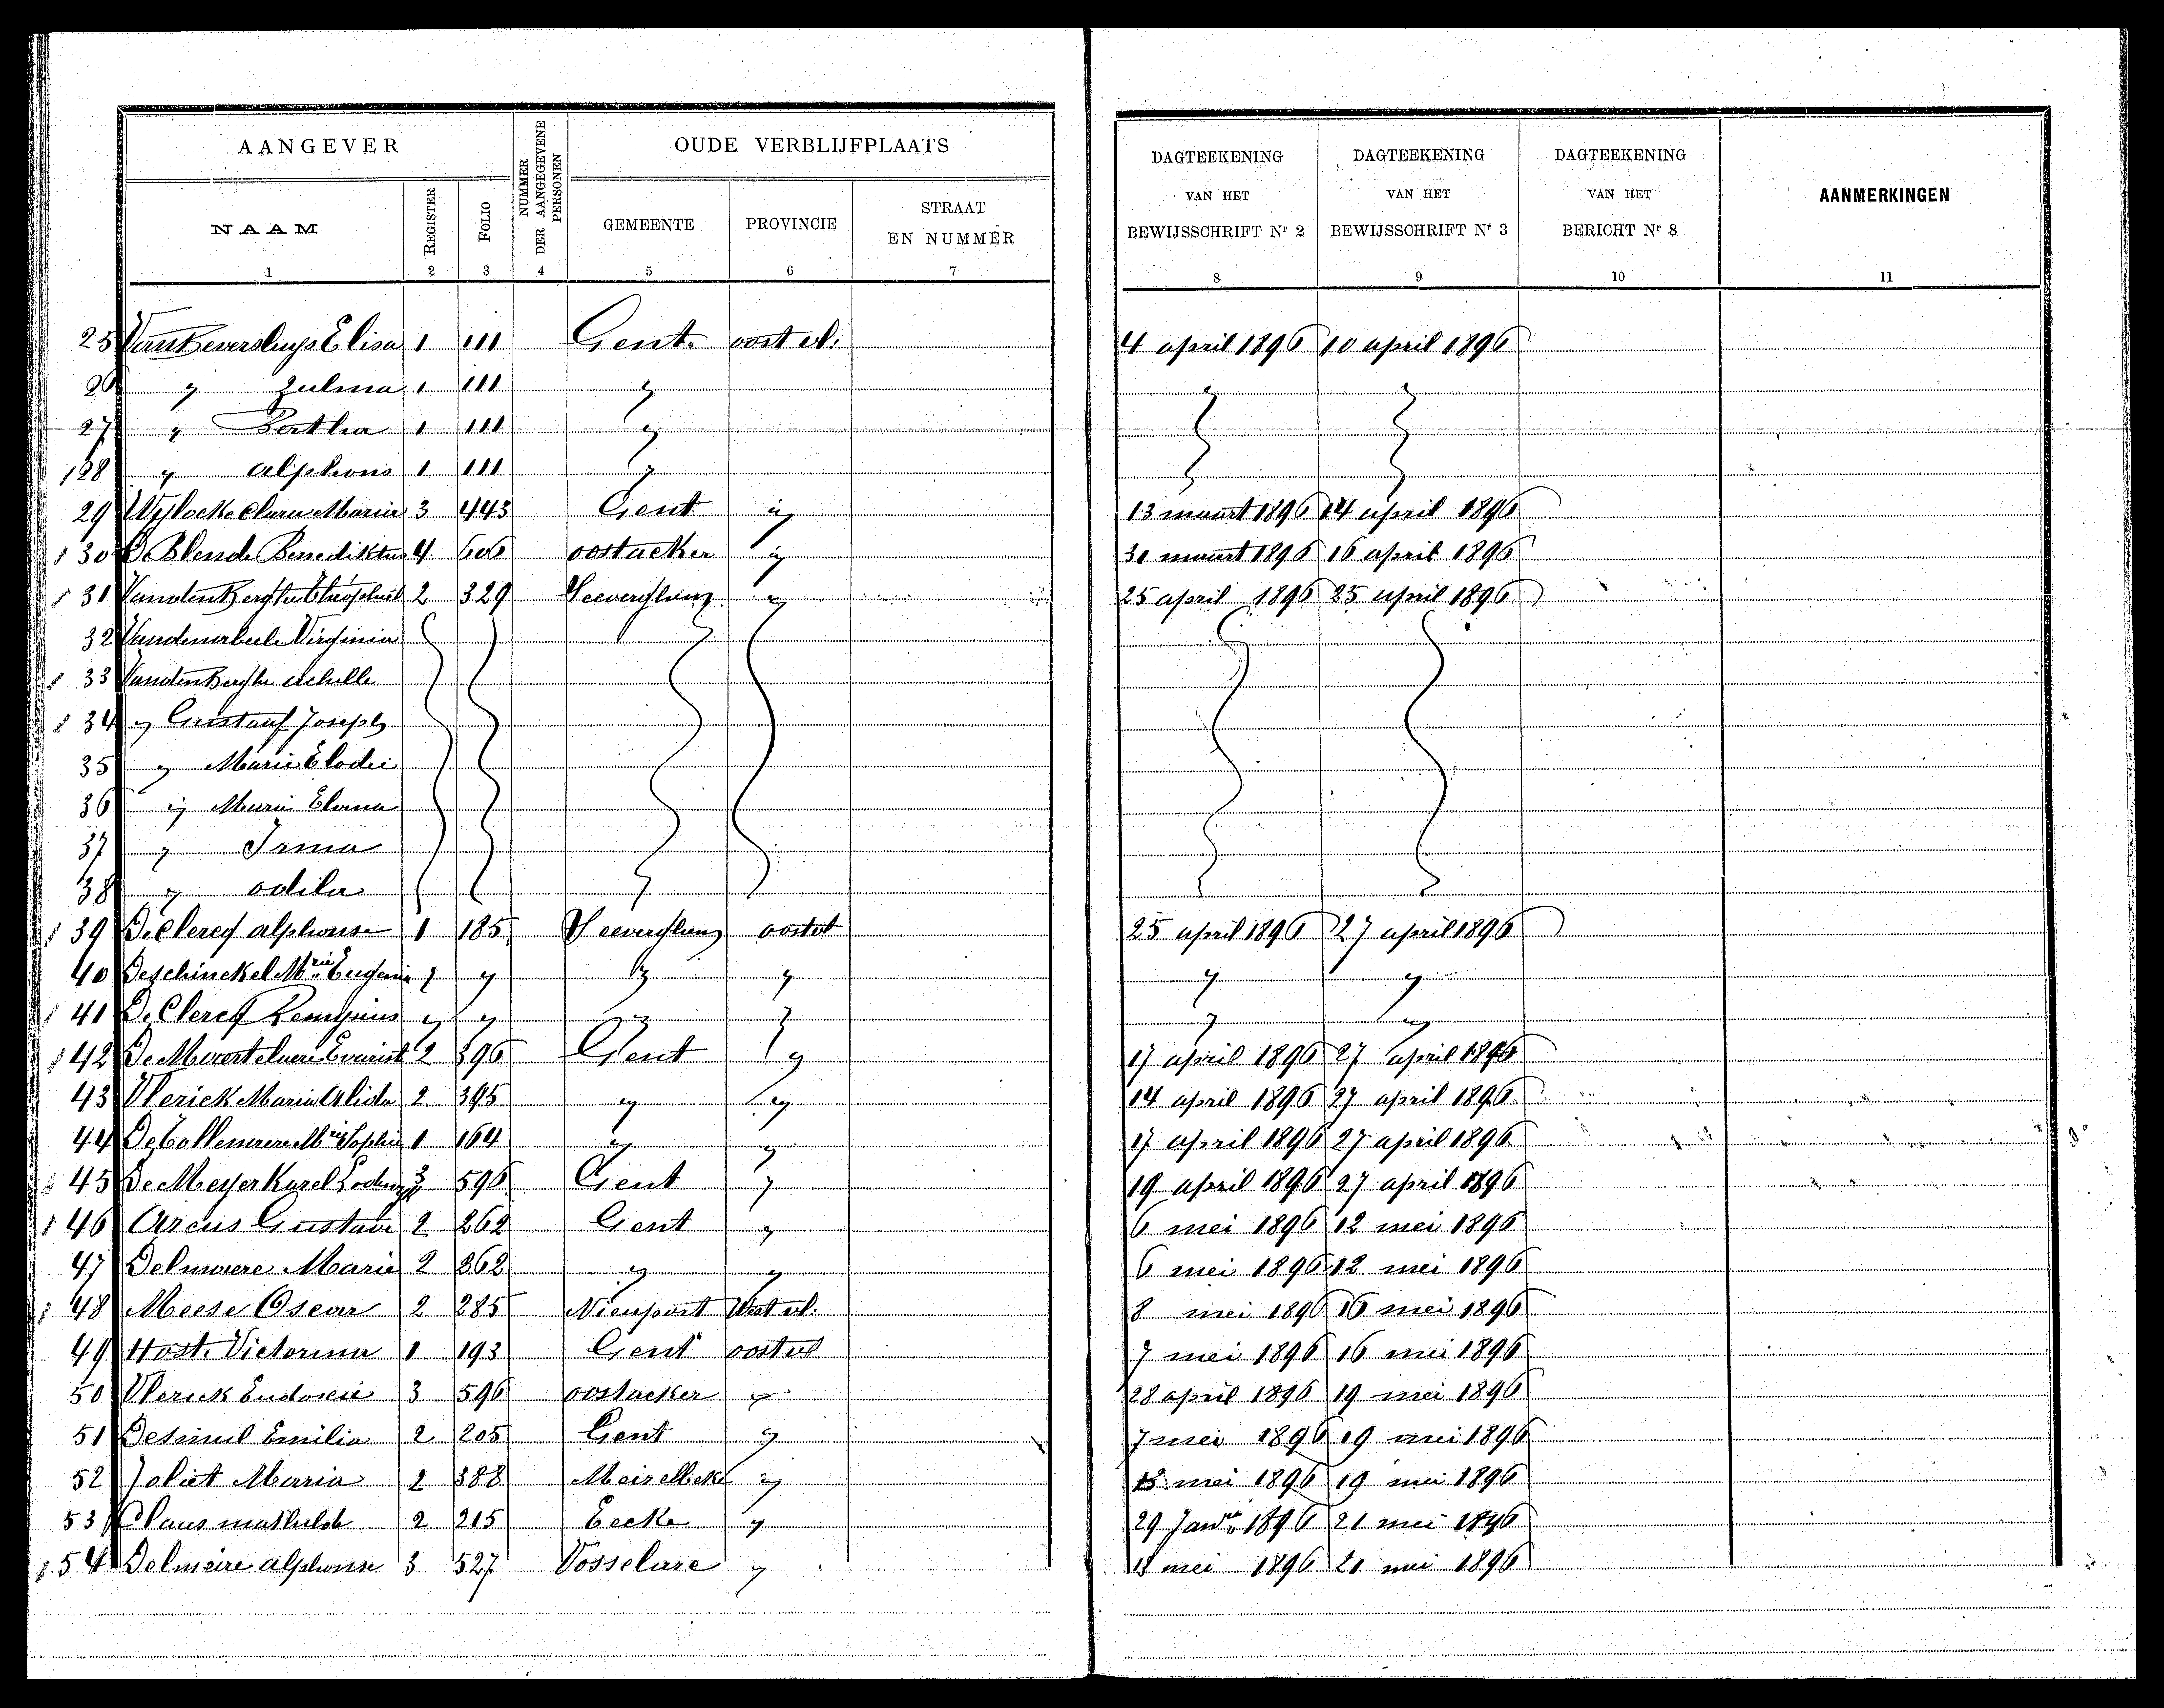 AANGEVER
NUMMER DER AANGEGEVENE PERSONEN
OUDE VERBLIJFPLAATS
DAGTEEKENING VAN HET BEWIJSSCHRIFT Nr 2
DAGTEEKENING VAN HET BEWIJSSCHRIFT Nr 3
DAGTEEKENING VAN HET BERICHT Nr 8
AANMERKINGEN
NAAM REGISTER FOLIO GEMEENTE PROVINCIE STRAAT EN NUMMER
1 2 3 4 5 6 7 8 9 10 11
25 VanBeversluys Elisa 1 111 Gent. oost vl. 4 april 1896 10 april 1896
26 " Zulma 1 111 " " "
27 " Bertha 1 111 "
128 " alphons 1 111 "
29 Wylocke Clara Maria 3 443 Gent " 13 maart 1896 14 april 1896
130 De Blende Benediktus 4 606 oostacker " 31 maart 1896 16 april 1896
131 VandenBerghe Théophiel 2 329 Seeverghem " 25 april 1896 25 april 1896
32 Vandenabeele Virginia
133 VandenBerghe achille
134 " Gustaaf Joseph
35 " Marie Elodie
36 " Marie
37 " Irma
38 " odila
139 De Clercq alphonse 1 185 Seeverghem oostvl 25 april 1896 27 april 1896
40 Deschinckel Mrie Eugenia " " " " " "
141 De Clercq Remigius " " " " " "
142 De Moerteleere Evarist 2 396 Gent " 17 april 1896 27 april 1896
43 Vlerick Maria Alida 2 395 " " 14 april 1896 27 april 1896
44 De Collenaere Mrie Sophie 1 164 " " 17 april 1896 27 april 1896
45 De Meyer Karel Lodewyk 3 596 Gent " 19 april 1896 27 april 1896
146 Arcus Gustave 2 262 Gent " 6 mei 1896 12 mei 1896
47 Delmaere Marie 2 262 " " 6 mei 1896 12 mei 1896
148 Meese Oscar 2 285 Nieuport West vl. 8 mei 1896 16 mei 1896
49 Hoste Victorina 1 193 Gent oostvl 7 mei 1896 16 mei 1896
50 Vlerick Eudoxie 3 596 oostacker " 28 april 1896 19 mei 1896
51 Desmul Emilia 2 205 Gent " 7 mei 1896 19 mei 1896
52 Joliet Maria 2 388 Meirelbeke " mei 1896 19 mei 1896
53 Claus mathilde 2 215 Eecke " 29 Janr 1896 21 mei 1896
154 Delmeire alphonse 3 527 Vosselare " 13 mei 1896 21 mei 1896